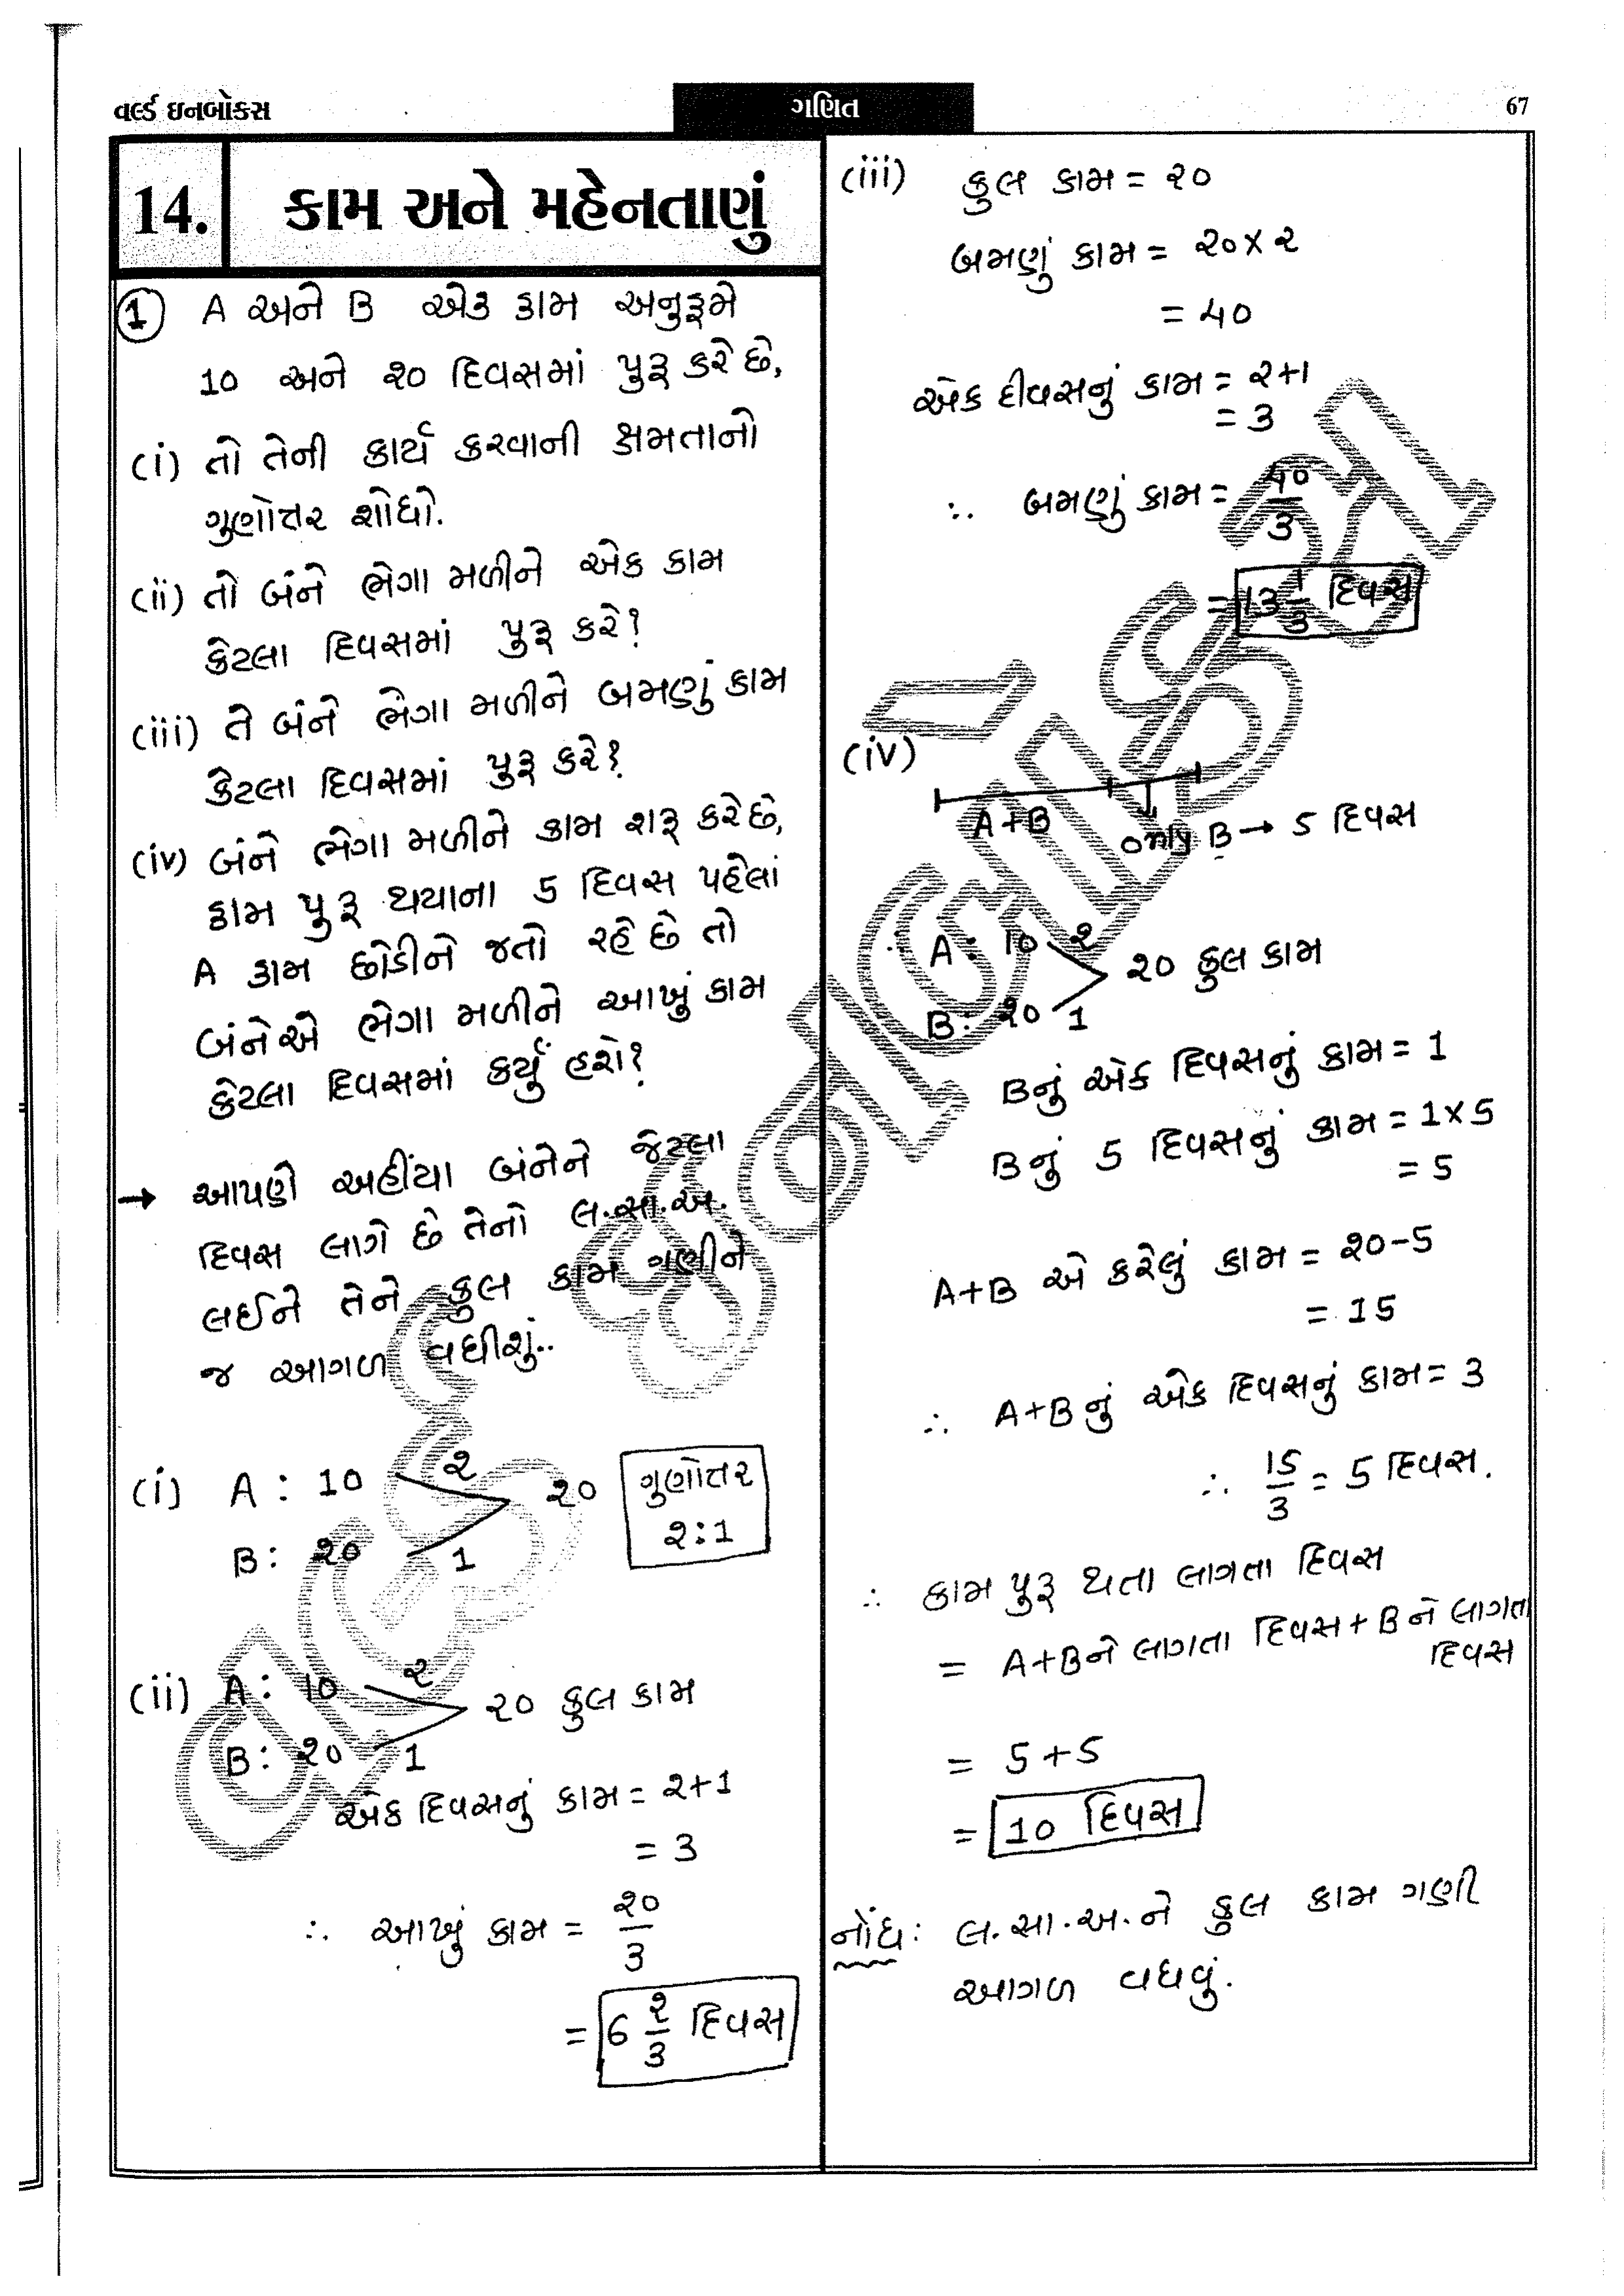 વર્લ્ડ ઇનબોક્સ
ગણિત
67
14.
કામ અને મહેનતાણું
1 A અને B એક કામ અનુક્રમે
10 અને ૨૦ દિવસમાં પુરૂ કરે છે,
(i) તો તેની કાર્ય કરવાની ક્ષમતાનો
ગુણોત્તર શોધો.
(ii) તો બંને ભેગા મળીને એક કામ
કેટલા દિવસમાં પુરૂ કરે?
(iii) તે બંને ભેગા મળીને બમણું કામ
કેટલા દિવસમાં પુરૂ કરે?
(iv) બંને ભેગા મળીને કામ શરૂ કરે છે,
કામ પુરૂ થયાના 5 દિવસ પહેલાં
A કામ છોડીને જતો રહે છે તો
બંનેએ ભેગા મળીને આખું કામ
કેટલા દિવસમાં કર્યું હશે?
→ આપણે અહીંયા બંનેને જેટલા
દિવસ લાગે છે તેનો લ.સા.અ.
લઈને તેને કુલ કામ ગણીને
જ આગળ વધીશું..
(i) A : 10 ૨
૨૦
B : ૨૦ 1
ગુણોત્તર
૨:1
(ii) A : 10 ૨
૨૦ કુલ કામ
B : ૨૦ 1
એક દિવસનું કામ = ૨+1
= 3
∴ આખું કામ = ૨૦/3
= 6 ૨/3 દિવસ
(iii) કુલ કામ = ૨૦
બમણું કામ = ૨૦ x ૨
= 40
એક દીવસનું કામ = ૨+1
= 3
∴ બમણું કામ = 40/3
= 13 1/3 દિવસ
(iv)
A+B
only B → 5 દિવસ
A : 10 ૨
૨૦ કુલ કામ
B : ૨૦ 1
Bનું એક દિવસનું કામ = 1
Bનું 5 દિવસનું કામ = 1 x 5
= 5
A+B એ કરેલું કામ = ૨૦-5
= 15
∴ A+Bનું એક દિવસનું કામ = 3
∴ 15/3 = 5 દિવસ.
∴ કામ પુરૂ થતા લાગતા દિવસ
= A+Bને લાગતા દિવસ + B ને લાગતા
દિવસ
= 5+5
= 10 દિવસ
નોંધ: લ.સા.અ.ને કુલ કામ ગણી
આગળ વધવું.
વર્લ્ડ ઇનબોક્સ